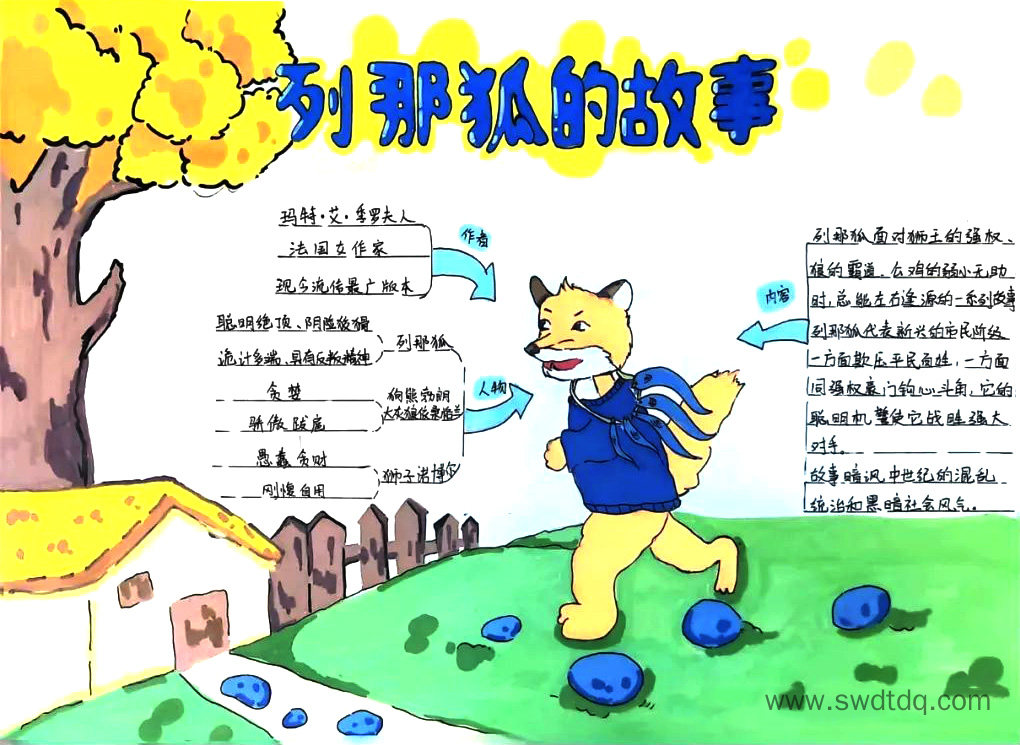 列那狐的故事
玛特·艾·季罗夫人
法国女作家
现今流传最广版本
作者
聪明绝顶、阴险狡猾
诡计多端、具有反叛精神
列那狐
贪婪
骄傲跋扈
狗熊勃朗
大灰狼依桑格兰
愚蠢贪财
刚愎自用
狮子诺博尔
人物
内容
列那狐面对狮王的强权、
狼的霸道、公鸡的弱小无助
时,总能左右逢源的一系列故事
列那狐代表新兴的市民阶级
一方面欺压平民百姓,一方面
同强权豪门钩心斗角,它的
聪明机警使它战胜强大
对手。
故事暗讽中世纪的混乱
统治和黑暗社会风气。
www.swdtdq.com